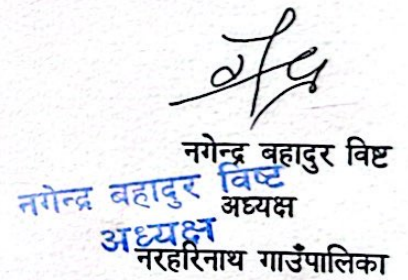 नगेन्द्र बहादुर विष्ट
नगेन्द्र बहादुर विष्ट
अध्यक्ष
अध्यक्ष
नरहरिनाथ गाउँपालिका